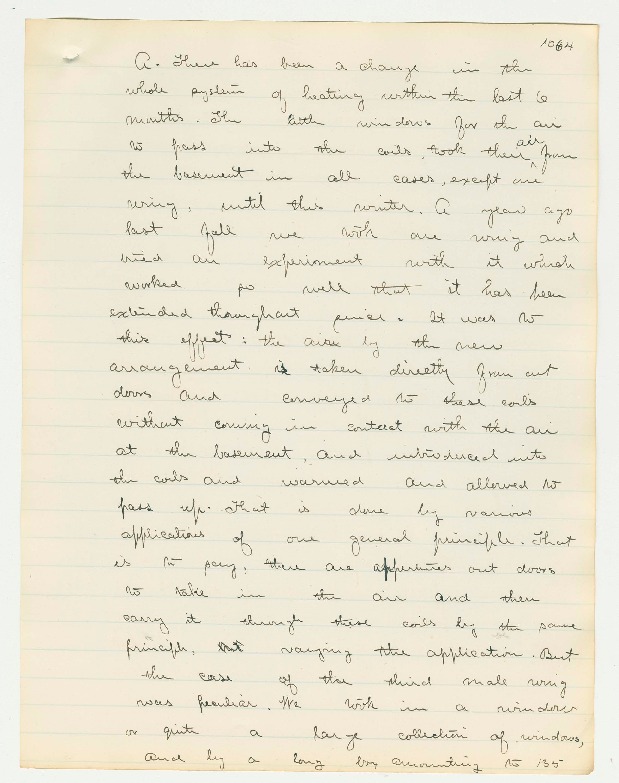 1064
A. There has been a change in the
whole system of heating within the last 6
months. The little windows for the air
to pass into the coils, took their air from
the basement in all cases, except one
wing, until this winter. A year ago
last fall we took one wing and
tried an experiment with it which
worked so well that it has been
extended throughout since. It was to
this effect: the air by the new
arrangement is taken directly from out
doors and conveyed to these coils
without coming in contact with the air
at the basement, and introduced into
the coils and warmed and allowed to
pass up. That is done by various
applications of one general principle. That
is to say, there are appertures out doors
to take in the air and then
carry it through these coils by the same
principle, but varying the application. But
the case of the third male wing
was peculiar. We took in a window
or quite a large collection of windows,
and by a long box amounting to 135